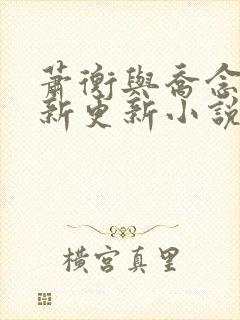 蕭衡與喬念
新更新小說
橫宮真里